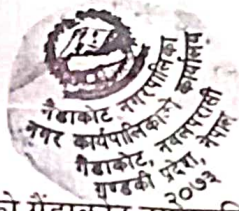 गैडाकोट नगरपालिका
नगर कार्यपालिकाको कार्यालय
गैडाकोट, नवलपरासी
गण्डकी प्रदेश, नेपाल
२०७३